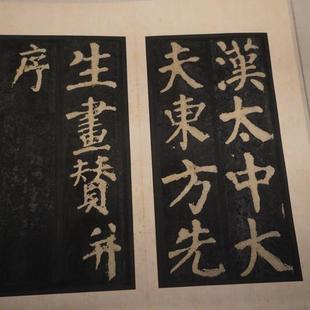 漢太中大
夫東方先
生畫贊并
序